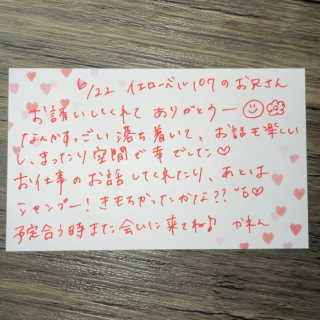 6/22 イエローベル107のお兄さん
お誘いしてくれて ありがとうー
なんかすっごい落ち着いて、お話も楽しい
し、まったり空間で幸でした♡
お仕事のお話してくれたり、あとは
シャンプー！きもちかったかな？？♡
予定合う時また会いに来てね♪ かれん